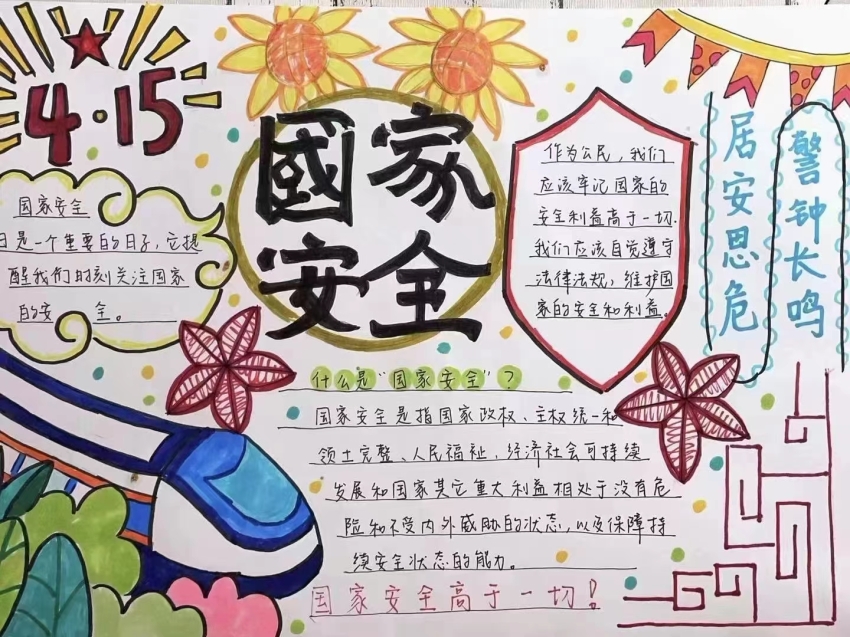 4·15
國家
安全
国家安全
日是一个重要的日子，它提
醒我们时刻关注国家
的安 全。
作为公民，我们
应该牢记国家的
安全利益高于一切.
我们应该自觉遵守
法律法规，维护国
家的安全和利益。
居安思危
警钟长鸣
什么是“国家安全”？
国家安全是指国家政权、主权统一和
领土完整、人民福祉，经济社会可持续
发展和国家其它重大利益相处于没有危
险和不受内外威胁的状态，以及保障持
续安全状态的能力。
国家安全高于一切！